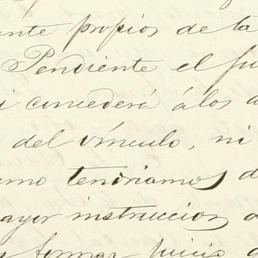 ente propios de la
Pendiente el fu
i concederá á los a
del vínculo, ni
amo tendriamos d
ayor instruccion a
formar juicio d